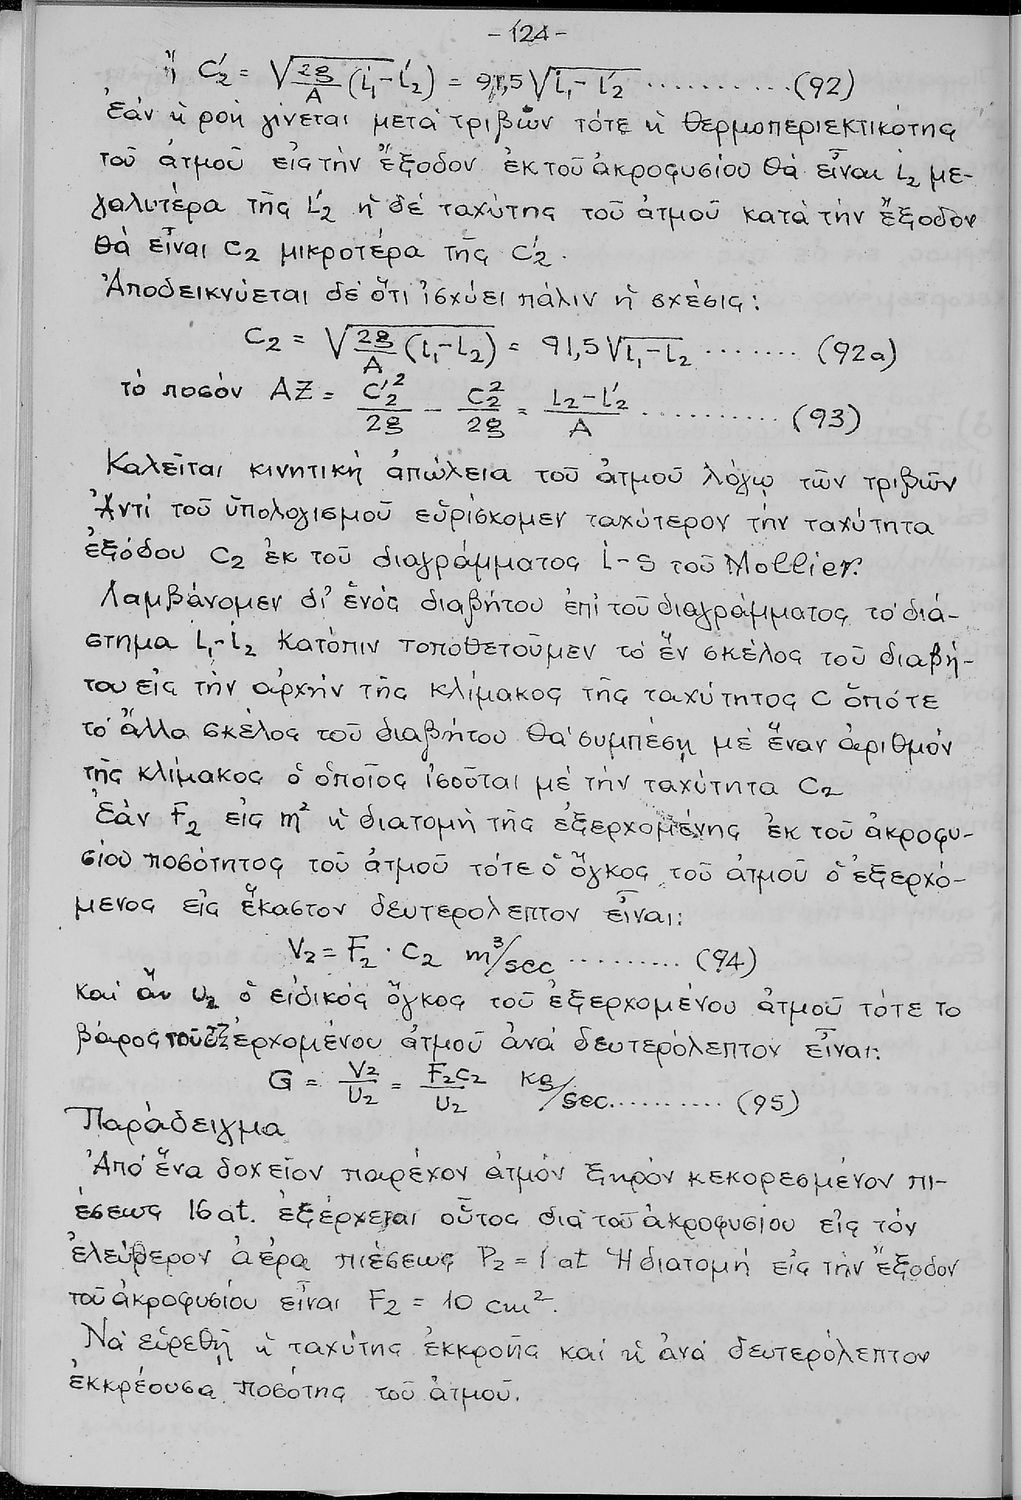 - 124 -
ἤ C′₂ = √(2g/A (i₁-i′₂)) = 91,5 √(i₁-i′₂) ........... (92)
Ἐάν ἡ ροή γίνεται μετά τριβῶν τότε ἡ θερμοπεριεκτικότης
τοῦ ἀτμοῦ εἰς τήν ἔξοδον ἐκ τοῦ ἀκροφυσίου θά εἶναι i₂ με-
γαλυτέρα τῆς i′₂ ἡ δέ ταχύτης τοῦ ἀτμοῦ κατά τήν ἔξοδον
θά εἶναι C₂ μικροτέρα τῆς C′₂.
Ἀποδεικνύεται δέ ὅτι ἰσχύει πάλιν ἡ σχέσις:
C₂ = √(2g/A (i₁-i₂)) = 91,5 √(i₁-i₂) ........ (92α)
τό ποσόν AZ = C′₂²/2g - C₂²/2g = i₂-i′₂/A ........... (93)
Καλεῖται κινητική ἀπώλεια τοῦ ἀτμοῦ λόγῳ τῶν τριβῶν
Ἀντί τοῦ ὑπολογισμοῦ εὑρίσκομεν ταχύτερον τήν ταχύτητα
ἐξόδου C₂ ἐκ τοῦ διαγράμματος i-s τοῦ Mollier.
Λαμβάνομεν δι' ἑνός διαβήτου ἐπί τοῦ διαγράμματος τό διά-
στημα i₁-i₂ Κατόπιν τοποθετοῦμεν τό ἕν σκέλος τοῦ διαβή-
του εἰς τήν ἀρχήν τῆς κλίμακος τῆς ταχύτητος C ὁπότε
τό ἄλλο σκέλος τοῦ διαβήτου θά συμπέσῃ μέ ἕναν ἀριθμόν
τῆς κλίμακος ὁ ὁποῖος ἰσοῦται μέ τήν ταχύτητα C₂
Ἐάν F₂ εἰς m² ἡ διατομή τῆς ἐξερχομένης ἐκ τοῦ ἀκροφυ-
σίου ποσότητος τοῦ ἀτμοῦ τότε ὁ ὄγκος τοῦ ἀτμοῦ ὁ ἐξερχό-
μενος εἰς ἕκαστον δευτερόλεπτον εἶναι:
V₂ = F₂ · C₂ m³/sec .......... (94)
καί ἄν υ₂ ὁ εἰδικός ὄγκος τοῦ ἐξερχομένου ἀτμοῦ τότε το
βάρος τοῦ ἐξερχομένου ἀτμοῦ ἀνά δευτερόλεπτον εἶναι:
G = V₂/υ₂ = F₂C₂/υ₂ Kg/sec........... (95)
Παράδειγμα
Ἀπό ἕνα δοχεῖον παρέχον ἀτμόν ξηρόν κεκορεσμένον πι-
έσεως 16 at. ἐξέρχεται οὗτος διά τοῦ ἀκροφυσίου εἰς τόν
ἐλεύθερον ἀέρα πιέσεως P₂ = 1 at Ἡ διατομή εἰς τήν ἔξοδον
τοῦ ἀκροφυσίου εἶναι F₂ = 10 cm².
Νά εὑρεθῇ ἡ ταχύτης ἐκκροῆς καί ἡ ἀνά δευτερόλεπτον
ἐκκρέουσα ποσότης τοῦ ἀτμοῦ.